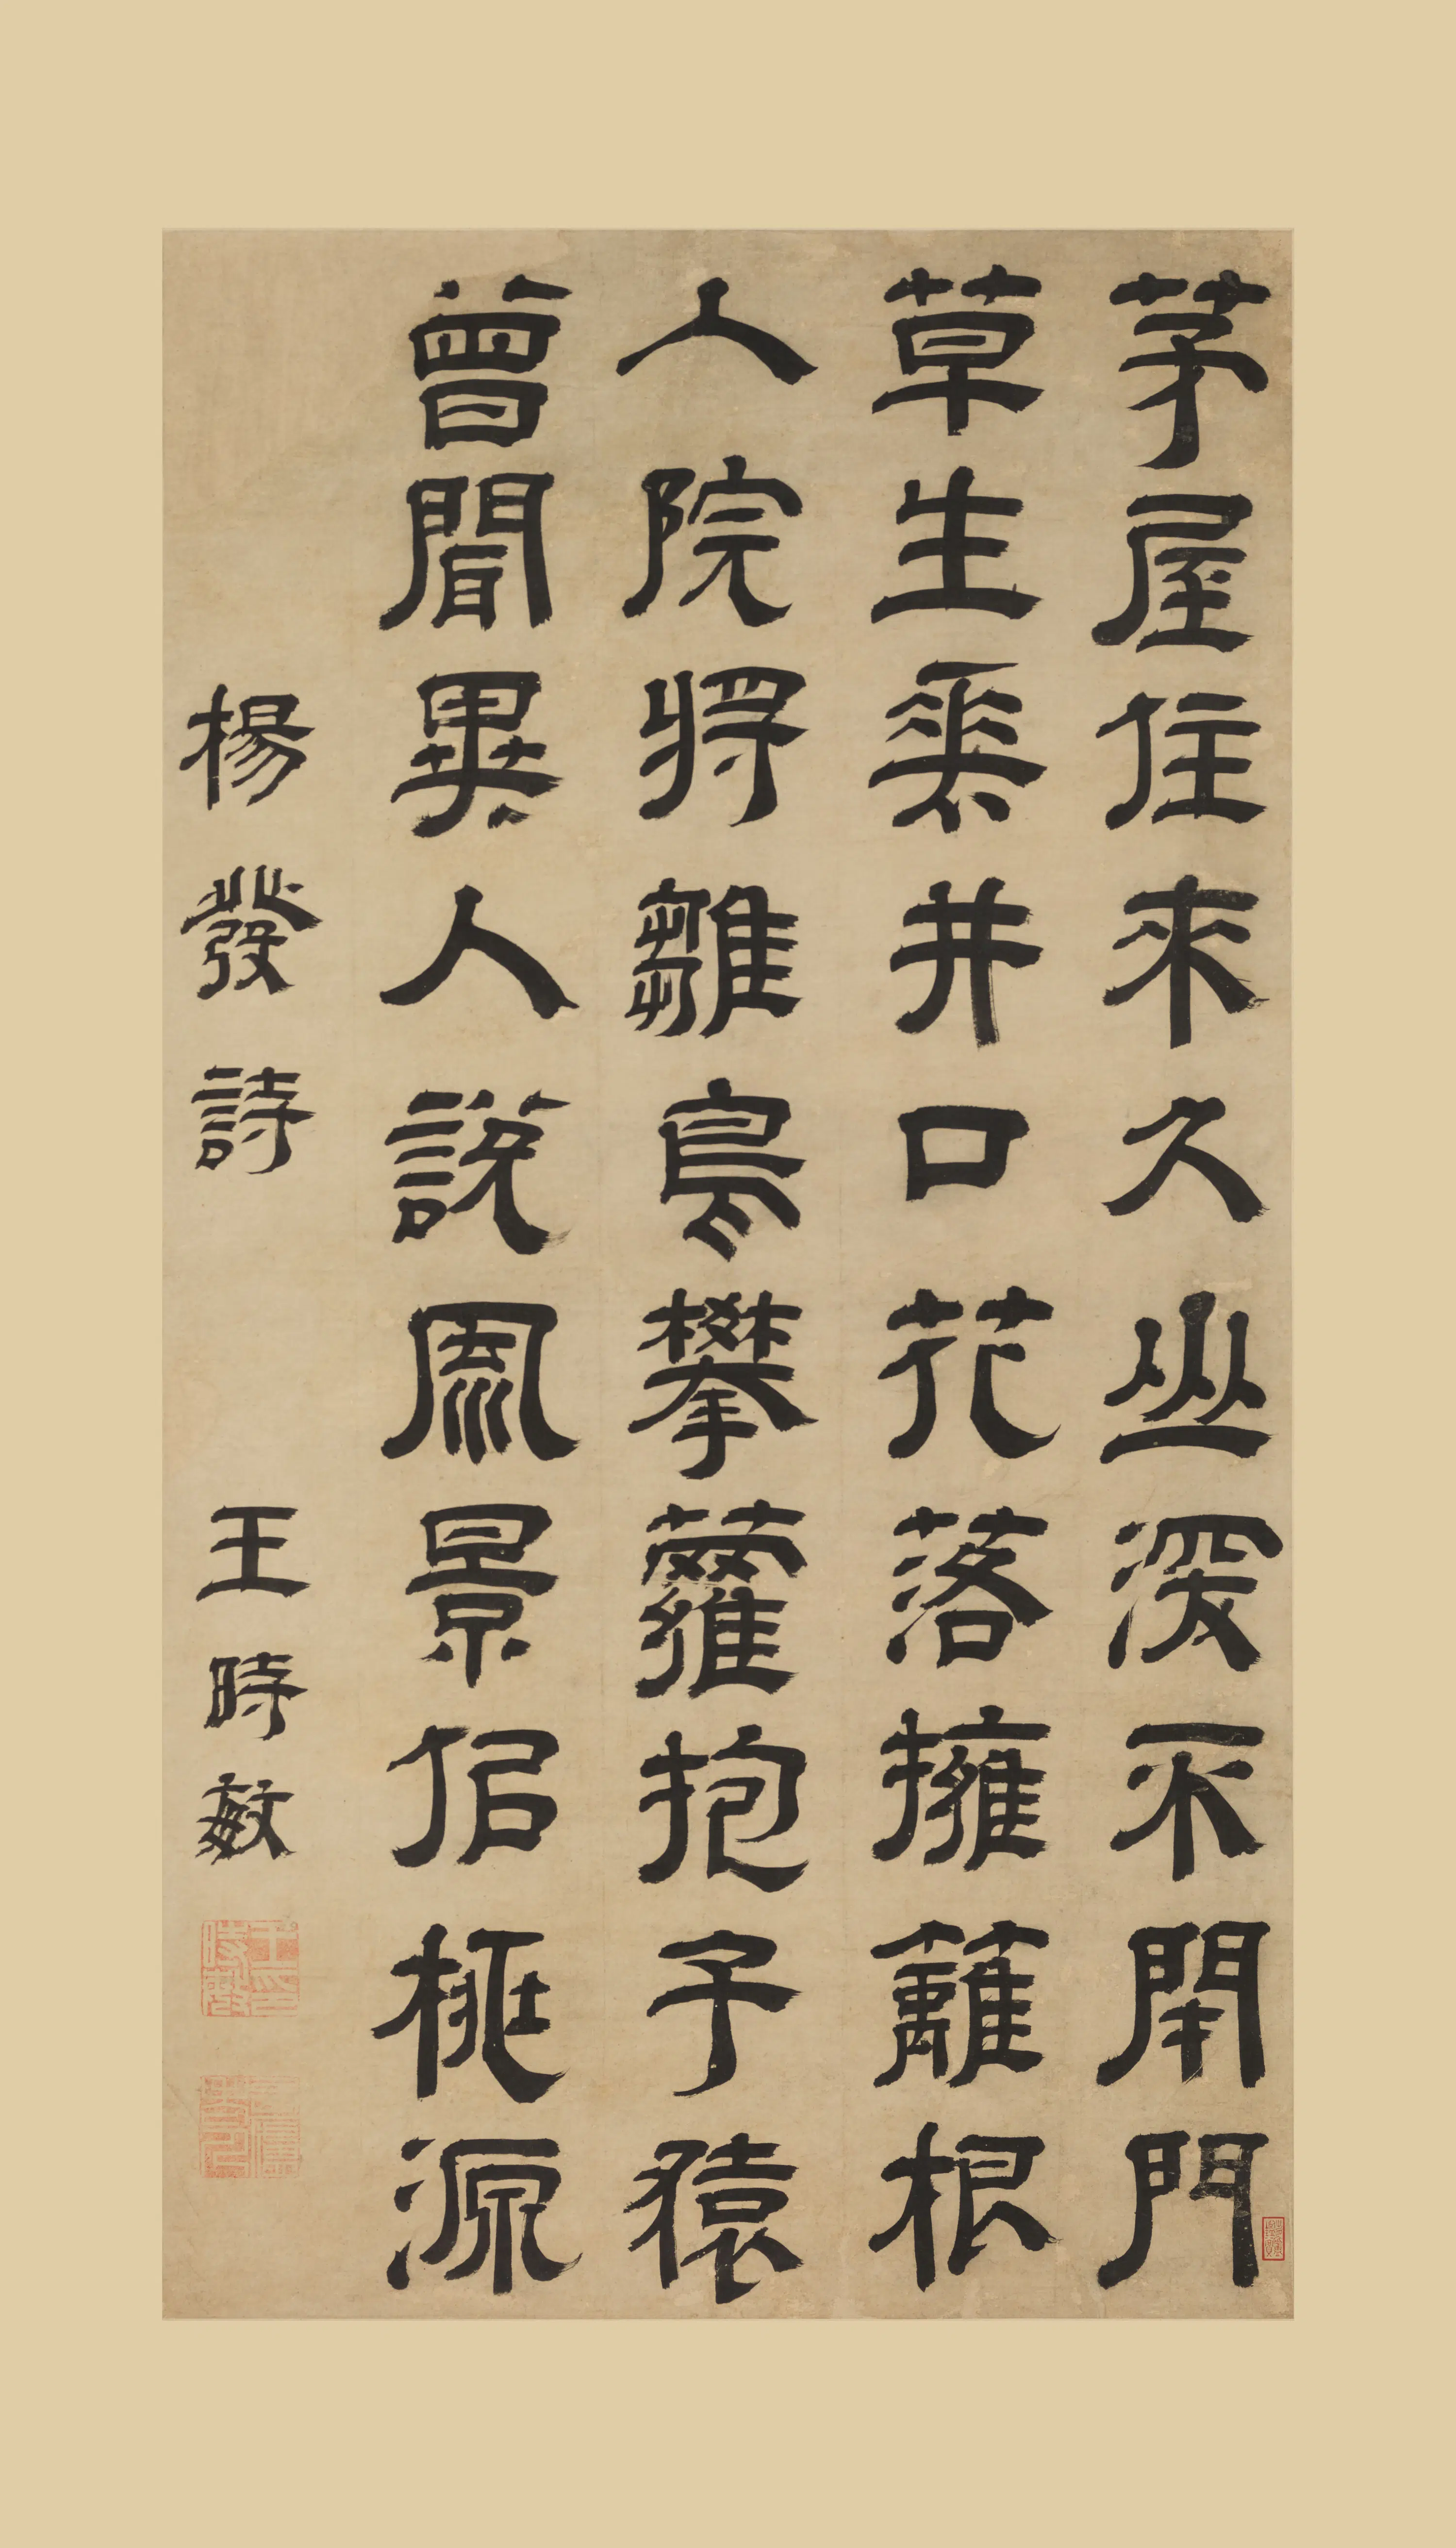 茅屋住來久山深不閉門
草生垂井口花落擁籬根
入院將雛鳥攀蘿抱子猿
曾聞異人說風景佀桃源
楊發詩
王時敏